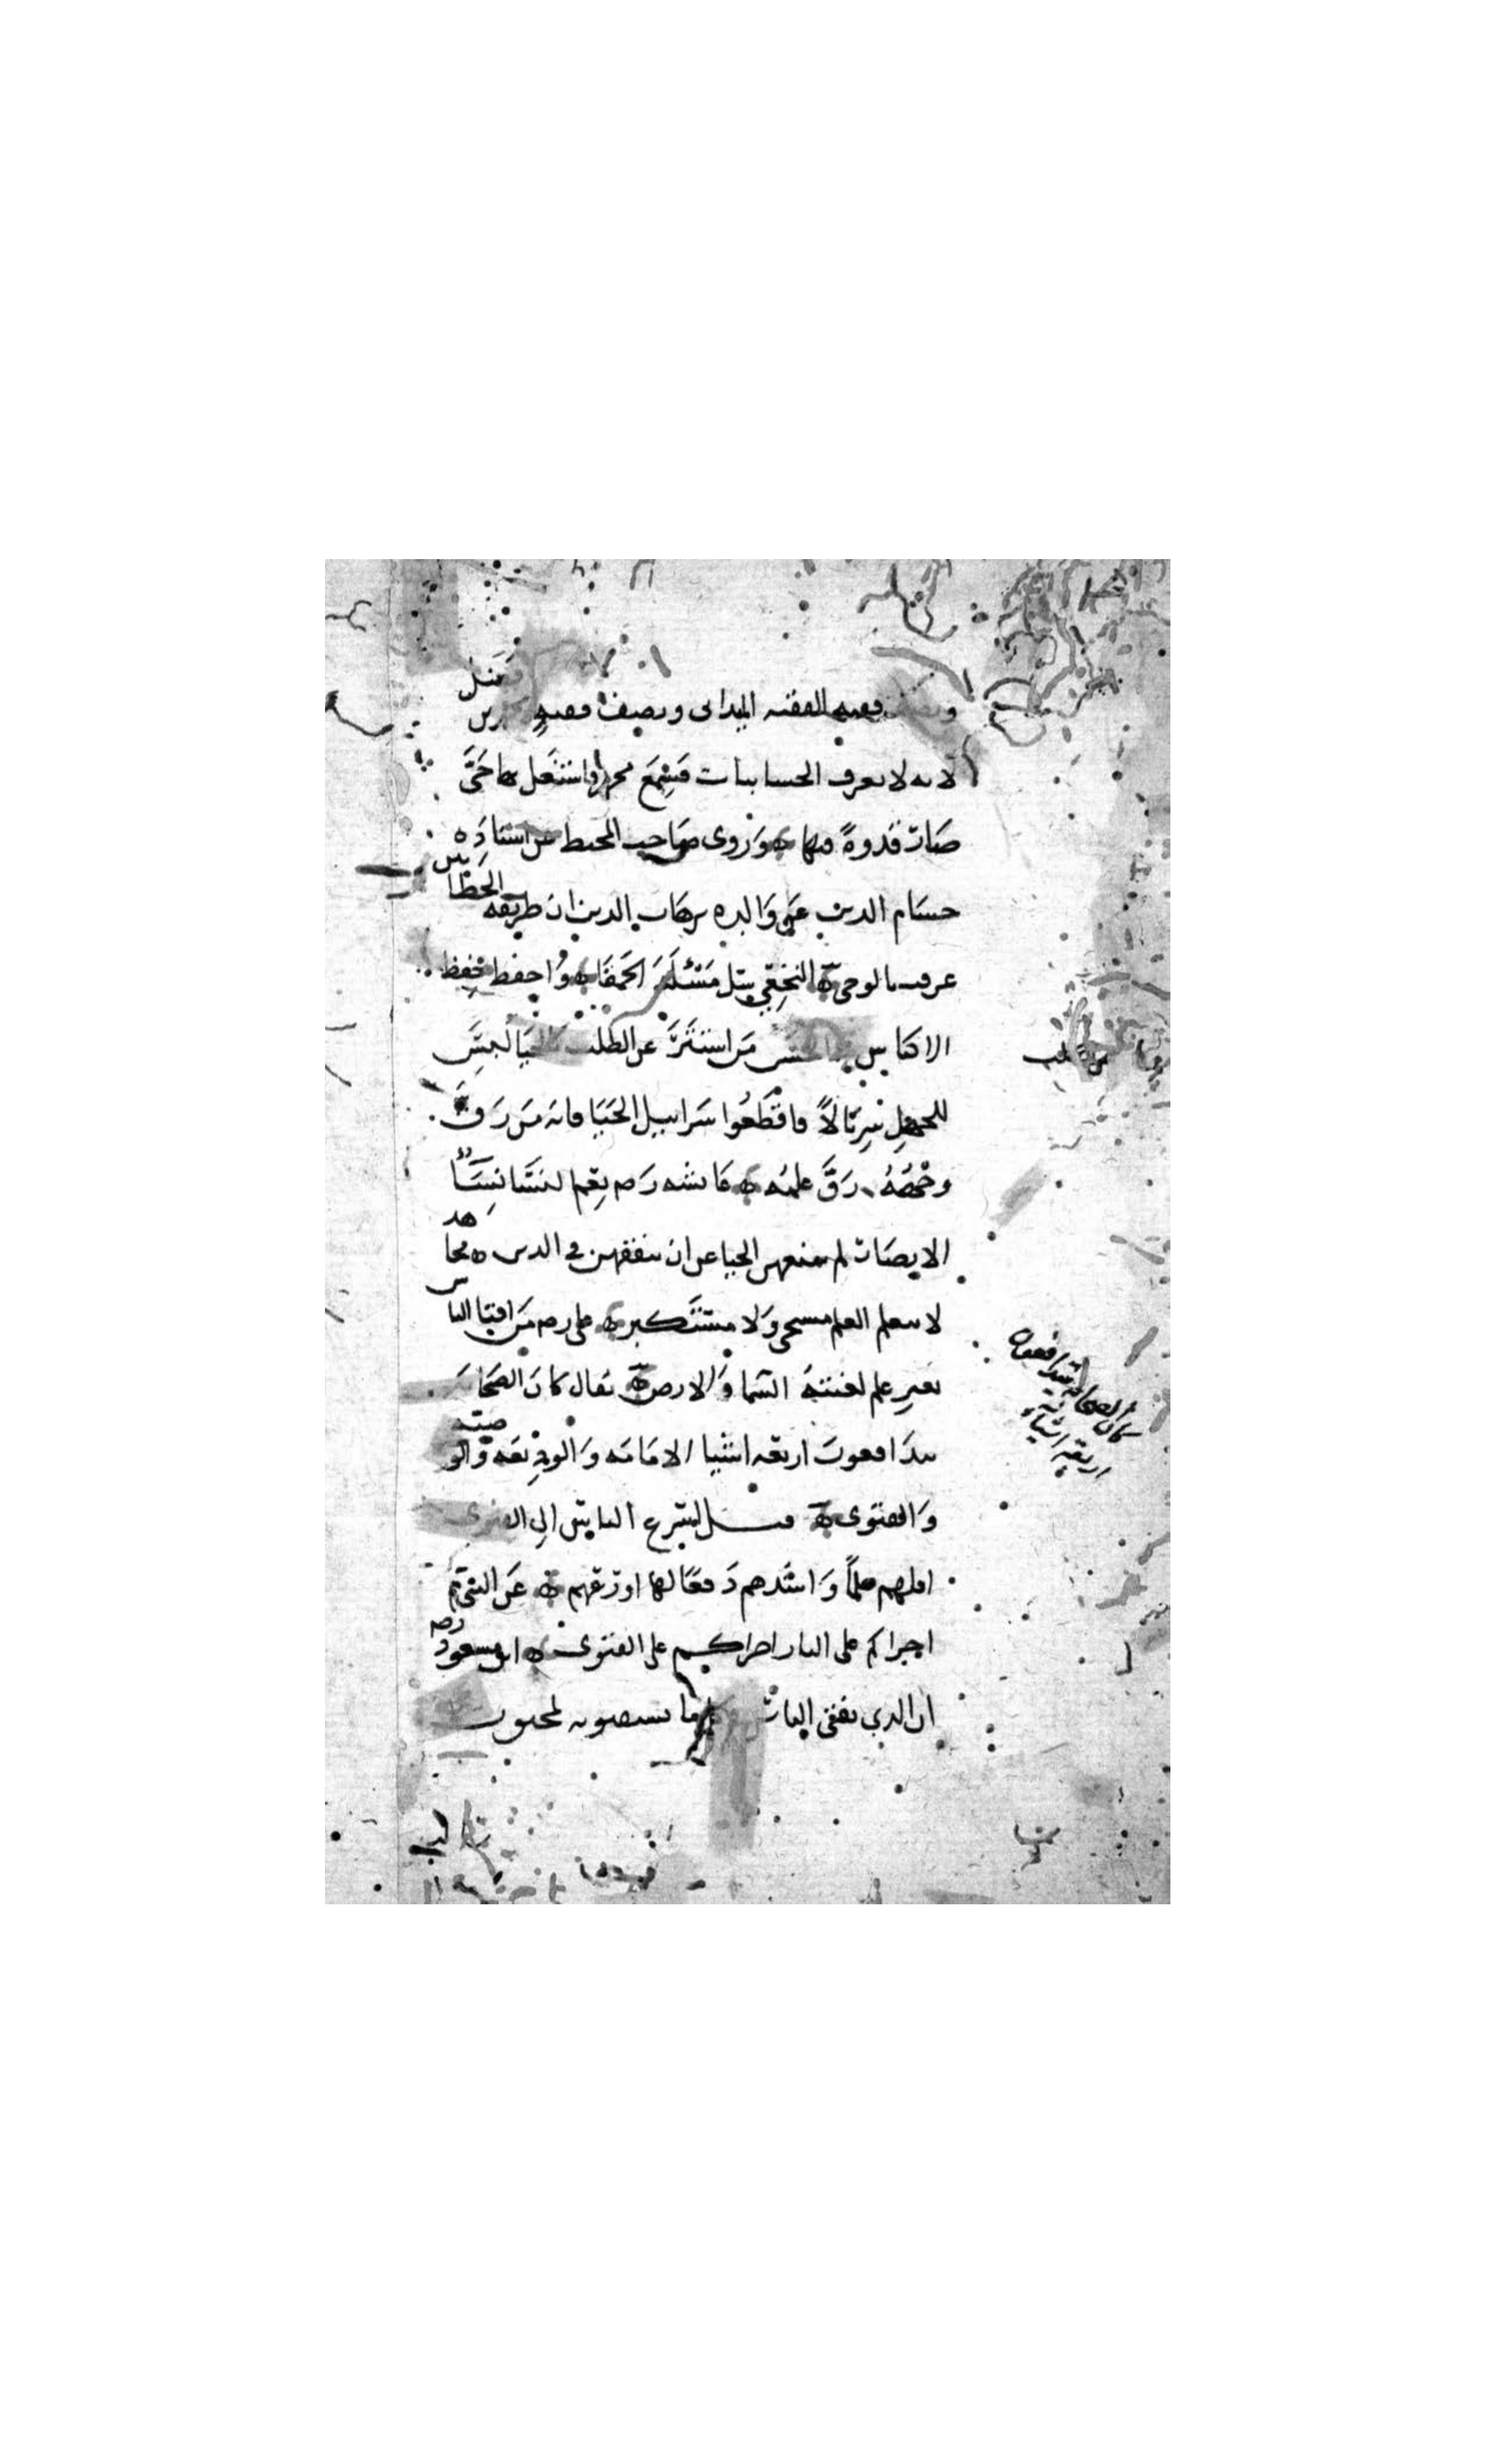 فقيه الفقيه الميداني ونصف فقيه
لانه لا يعرف الحسابيات فسمع محمد فاشتغل بها حتى
صار قدوة فيها وروى صاحب المحيط عن استاذه
حسام الدين عن والده برهان الدين ان طريقة الخطأين
عرف بالوحي النخعي سل مسئلة الحمقا واحفظ حفظ
الاكياس الحسن من استتر عن الطلب بالحيا لبس
للجهل سربالا فاقطعوا سرابيل الحيا فانه من رق
وجهه رق علمه عائشه رضـ نعم النسا نسا
الانصار لم يمنعهن الحيا عن ان يتفقهن في الدين مجاهد
لا يتعلم العلم مستحي ولا مستكبر على رضـ من افتا الناس
بغير علم لعنته السما والارض يقال كان الصحابة
يتدافعون اربعه اشيا الامامه والوديعه والوصيه
والفتوى قيل اسرع الناس الى الفتوى
اقلهم علما واشدهم دفعا لها اورعهم عن النبي
اجراكم على النار اجراكم على الفتوى ابن مسعود رضـ
ان الذي يفتي الناس ما يستفتونه لمجنون
كان الصحابة يتدافعون
اربعة اشياء